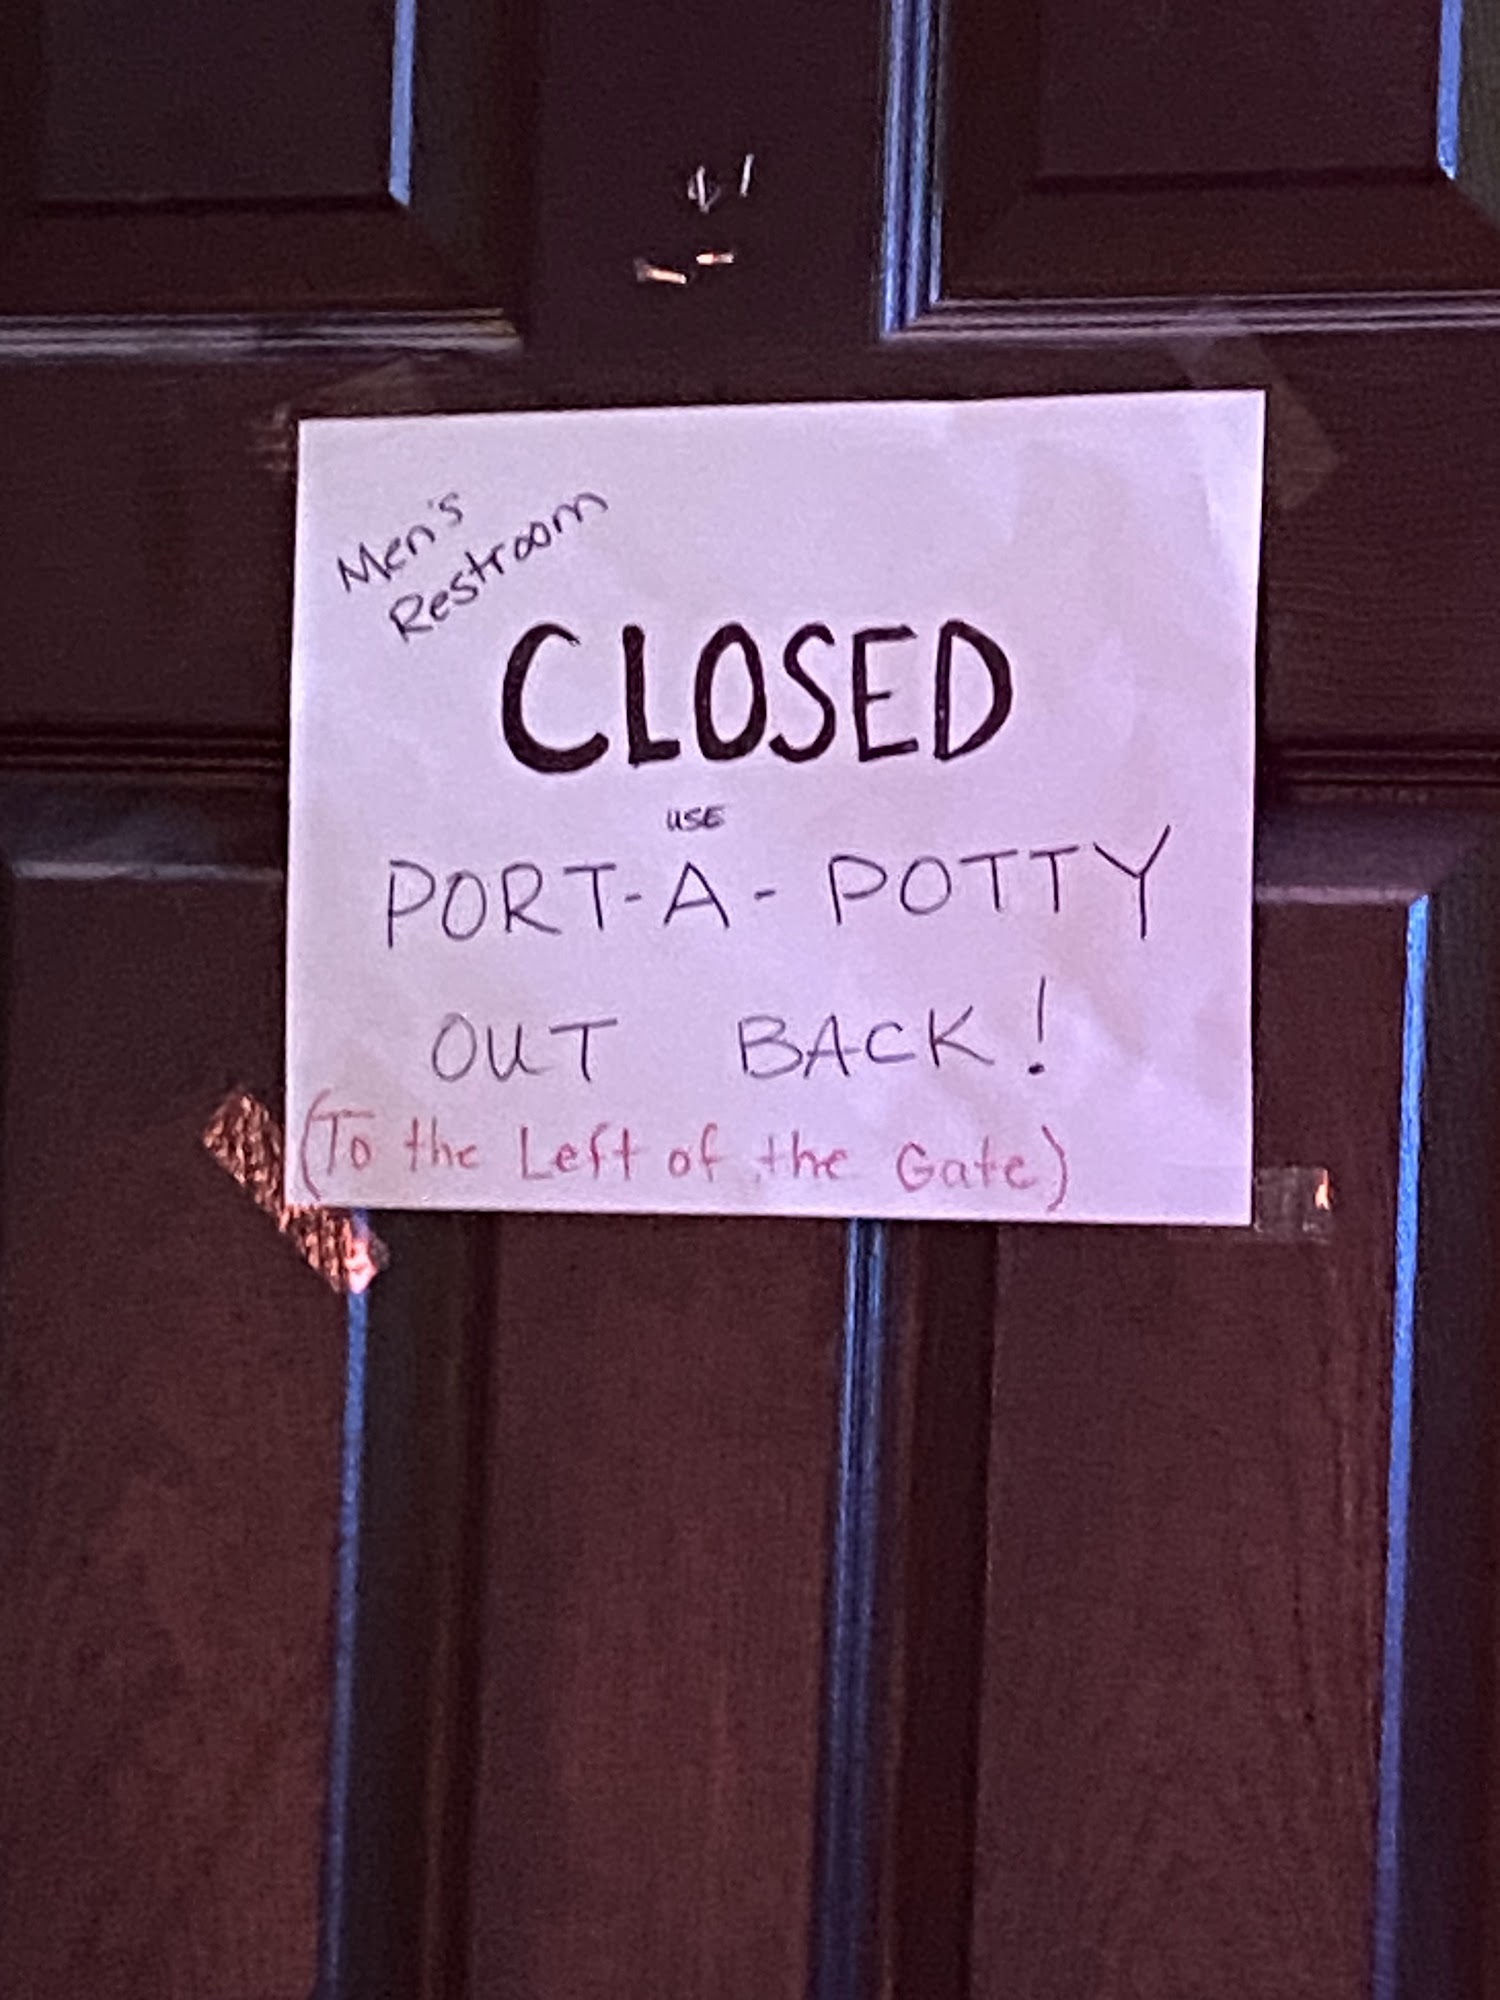 Men's
Restroom
CLOSED
USE
PORT-A-POTTY
OUT BACK!
(To the Left of the Gate)